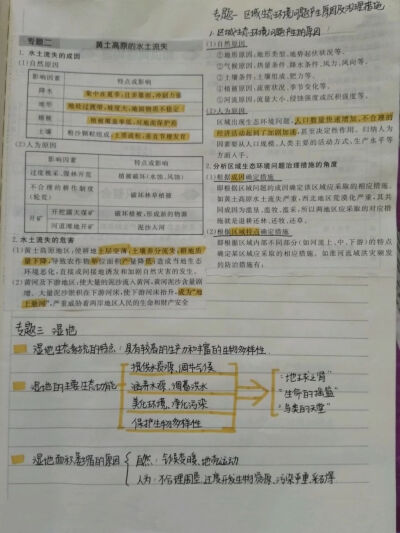 专题一 区域生态环境问题产生原因及治理措施
1. 区域生态环境问题产生的原因
(1)自然原因
①地形原因,地形类型、地势起伏状况等。
②气候原因,热量条件,降水条件,风力、风向等。
③土壤条件:土壤组成,肥力等。
④植被原因,疏密状况、季节变化等。
⑤河流原因,流量大小、侵蚀强度或沉积强度等。
(2)人为原因
区域出现生态环境问题,人口数量快速增加、不合理的
经济活动起到了加剧加速,甚至决定性作用。归纳人为
因素要从人口规模、人类主要的活动方式、生产水平等
方面入手。
2. 分析区域生态环境问题治理措施的角度
(1)根据成因确定措施
即根据区域问题的成因确定该区域应采取的相应措施。
如黄土高原水土流失严重,西北地区荒漠化严重,其共
同成因为滥垦、滥牧、滥采,所以两地区应采取的对应措
施就是退耕还林、还牧、还草。
(2)根据区域特点确定措施
即根据区域内部不同部分(如河流上、中、下游)的特点
确定某区域应采取的相应措施。如淮河流域洪灾频发
的防治措施有:
专题二 黄土高原的水土流失
1. 水土流失的成因
(1)自然原因
影响因素 特点或影响
降水 集中在夏季,且多暴雨,冲刷力强
地带 地处过渡带,坡度大,地面物质不稳定
植被 植被覆盖率低,对地面保护差
土壤 粉沙颗粒组成,土质疏松,垂直节理发育
(2)人为原因
影响因素 特点或影响
过度樵采、毁林开荒 植被破坏(水蚀、风蚀)
不合理的耕作制度(轮荒) 破坏林草植被
开矿 开挖露天煤矿 破坏植被,形成新的物源
沟道地带开矿 泥沙入河
2. 水土流失的危害
(1)黄土高原地区:使耕地土层变薄,土壤养分流失,耕地质
量下降,导致农作物单位面积产量降低;造成当地生态
环境恶化,直接或间接地诱发和加剧自然灾害的发生。
(2)黄河及下游地区:使大量的泥沙流入黄河,黄河泥沙含量剧
增。大量泥沙淤积在下游河床,使下游河床抬升,成为“地
上悬河”,严重威胁着两岸地区人民的生命和财产安全
专题三 湿地
湿地生态系统的特点:具有较高的生产力和丰富的生物多样性
湿地的主要生态功能
提供水资源,调节气候
涵养水源,调蓄洪水
美化环境,净化污染
保护生物多样性
“地球之肾”
“生命的摇篮”
“鸟类的天堂”
湿地面积萎缩的原因
自然:气候变暖、地壳运动
人为:不合理围垦,过度开发生物资源,污染严重